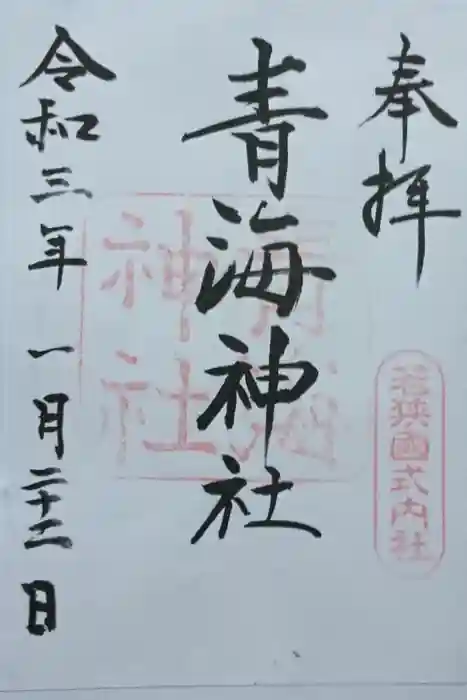 奉拝
若狭國式内社
青海神社
青海
神社
令和三年一月二十二日